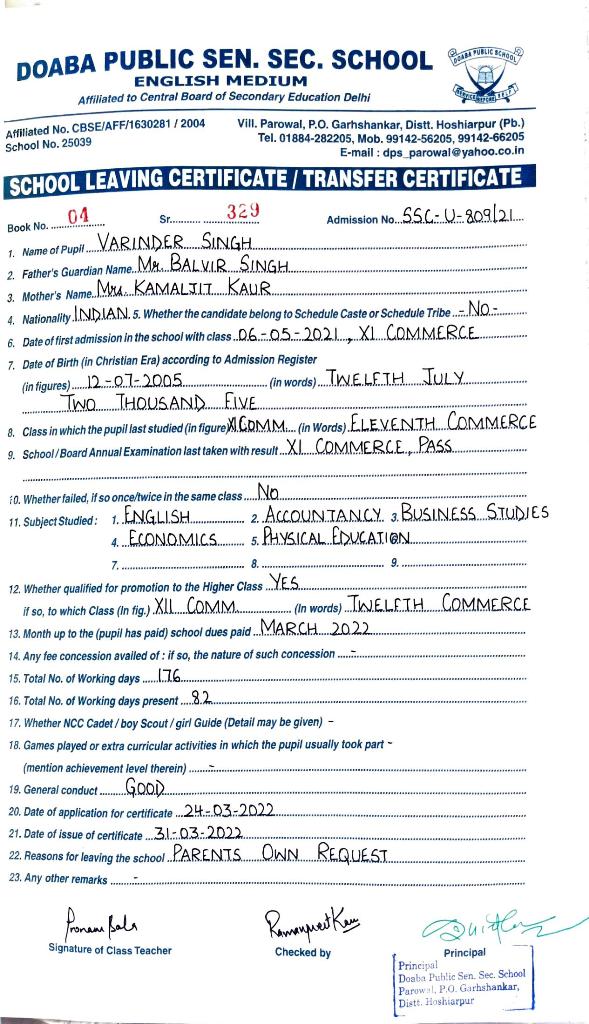 DOABA PUBLIC SEN. SEC. SCHOOL
ENGLISH MEDIUM
Affiliated to Central Board of Secondary Education Delhi
DOABA PUBLIC SCHOOL
Affiliated No. CBSE/AFF/1630281 / 2004
School No. 25039
Vill. Parowal, P.O. Garhshankar, Distt. Hoshiarpur (Pb.)
Tel. 01884-282205, Mob. 99142-56205, 99142-66205
E-mail : dps_parowal@yahoo.co.in
SCHOOL LEAVING CERTIFICATE / TRANSFER CERTIFICATE
Book No. 04 Sr. 329 Admission No. SSC-U-809/21
1. Name of Pupil VARINDER SINGH
2. Father's Guardian Name Mr. BALVIR SINGH
3. Mother's Name Mrs. KAMALJIT KAUR
4. Nationality INDIAN 5. Whether the candidate belong to Schedule Caste or Schedule Tribe -No-
6. Date of first admission in the school with class 06-05-2021, XI COMMERCE
7. Date of Birth (in Christian Era) according to Admission Register
(in figures) 12-07-2005 (in words) TWELFTH JULY
TWO THOUSAND FIVE
8. Class in which the pupil last studied (in figure) XI COMM. (in Words) ELEVENTH COMMERCE
9. School / Board Annual Examination last taken with result XI COMMERCE, PASS
10. Whether failed, if so once/twice in the same class No
11. Subject Studied : 1. ENGLISH 2. ACCOUNTANCY 3. BUSINESS STUDIES
4. ECONOMICS 5. PHYSICAL EDUCATION 6.
7. 8. 9.
12. Whether qualified for promotion to the Higher Class YES
if so, to which Class (In fig.) XII COMM (In words) TWELFTH COMMERCE
13. Month up to the (pupil has paid) school dues paid MARCH 2022
14. Any fee concession availed of : if so, the nature of such concession -
15. Total No. of Working days 176
16. Total No. of Working days present 82
17. Whether NCC Cadet / boy Scout / girl Guide (Detail may be given) -
18. Games played or extra curricular activities in which the pupil usually took part -
(mention achievement level therein) -
19. General conduct GOOD
20. Date of application for certificate 24-03-2022
21. Date of issue of certificate 31-03-2022
22. Reasons for leaving the school PARENTS OWN REQUEST
23. Any other remarks -
Ramanpreet Kaur
Signature of Class Teacher Checked by Principal
Principal
Doaba Public Sen. Sec. School
Parowal, P.O. Garhshankar,
Distt. Hoshiarpur